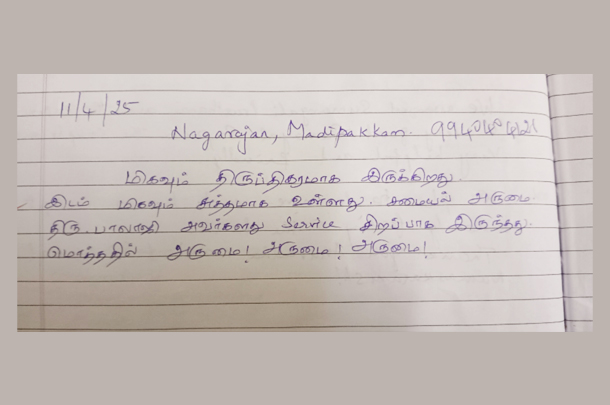 11/4/25
Nagarajan, Madipakkam. 9940404121
மிகவும் திருப்திகரமாக இருக்கிறது.
இடம் மிகவும் சுத்தமாக உள்ளது. சமையல் அருமை.
திரு. பாலாஜி அவர்களது Service சிறப்பாக இருந்தது.
மொத்ததில் அருமை! அருமை! அருமை!